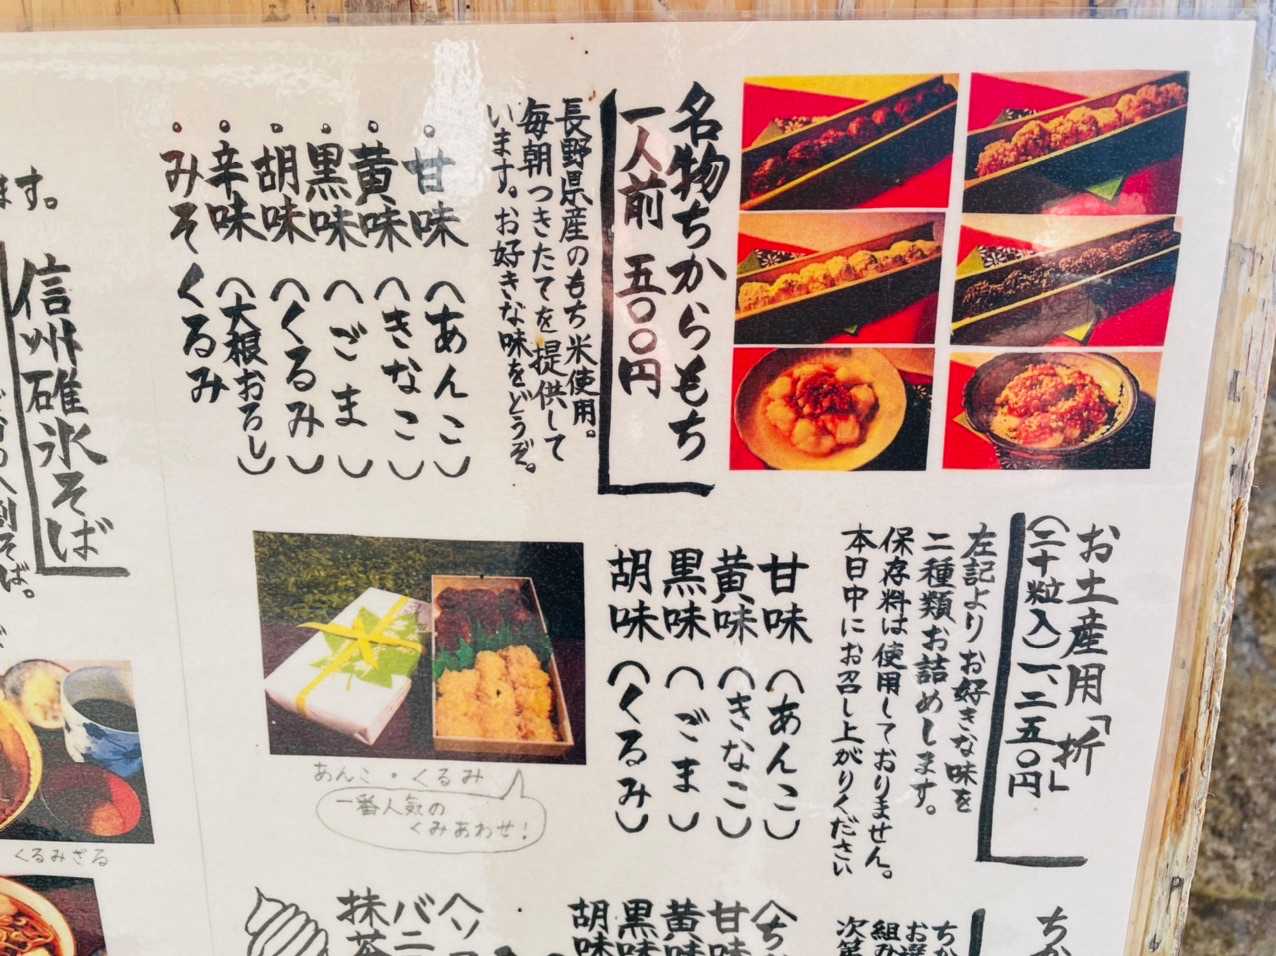 名物ちからもち
一人前 五〇〇円
長野県産のもち米使用。
毎朝つきたてを提供して
います。お好きな味をどうぞ。
・甘味(あんこ)
・黄味(きなこ)
・黒味(ごま)
・胡味(くるみ)
・辛味(大根おろし)
・みそくるみ
お土産用「折」
(二十粒入)一、二五〇円
左記よりお好きな味を
二種類お詰めします。
保存料は使用しておりません。
本日中にお召し上がりください
甘味(あんこ)
黄味(きなこ)
黒味(ごま)
胡味(くるみ)
あんこ・くるみ
一番人気の
くみあわせ!
ます。
信州碓氷そば
くるみざる
ちか
ちか
お選
組み
次第
甘味
黄味
黒味
胡味
ソ
バニ
抹茶